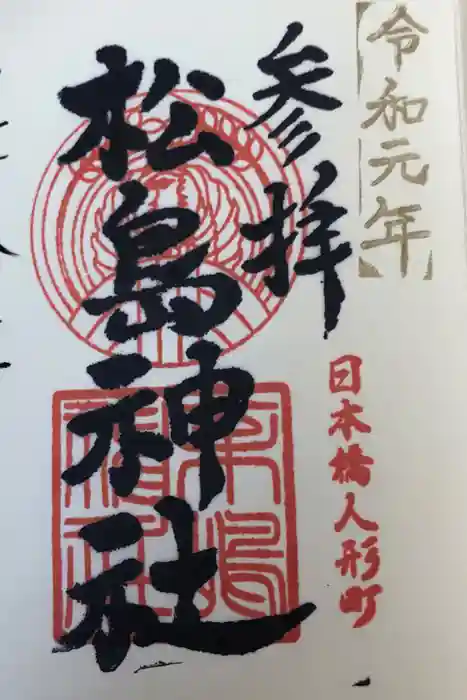 令和元年
参拝
日本橋人形町
松島神社